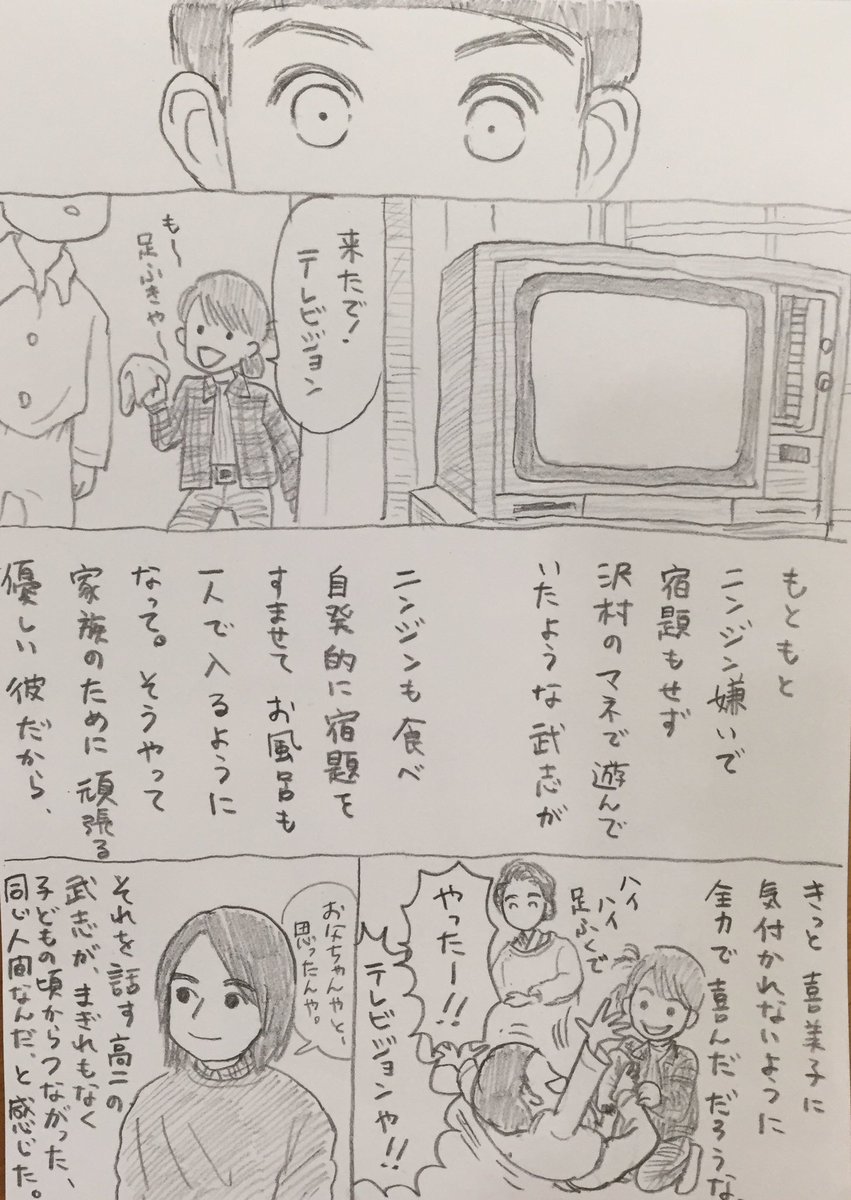 来たで!
テレビジョン
も〜
足ふきゃ〜
もともと
ニンジン嫌いで
宿題もせず
沢村のマネで遊んで
いたような武志が
ニンジンも食べ
自発的に宿題を
すませて お風呂も
一人で入るように
なって。そうやって
家族のために頑張る
優しい彼だから、
きっと喜美子に
気付かれないように
全力で喜んだだろうな
ハイ
ハイ
足ふくで
やったー!!
テレビジョンや!!
お父ちゃんやと、
思ったんや。
それを話す高二の
武志が、まぎれもなく
子どもの頃からつながった、
同じ人間なんだ、と感じた。